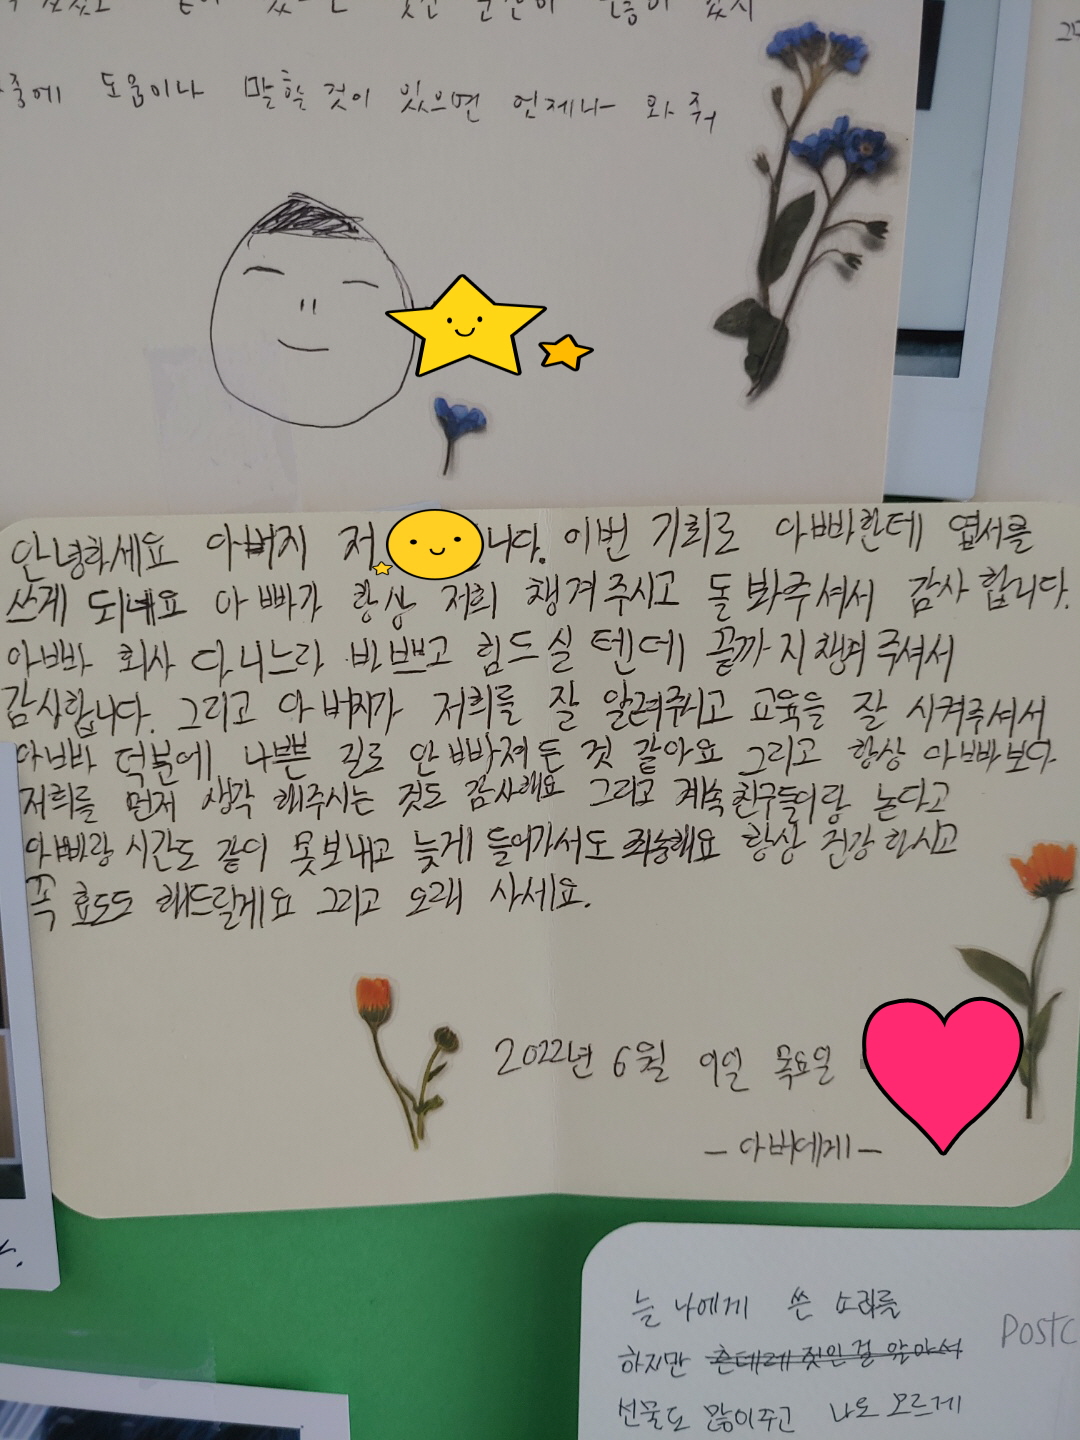 중에 도움이나 말할 것이 있으면 언제나 와 줘
안녕하세요 아버지 저 니다. 이번 기회로 아빠한테 엽서를
쓰게 되네요 아빠가 항상 저희 챙겨주시고 돌봐주셔서 감사합니다.
아빠 회사 다니느라 바쁘고 힘드실텐데 끝까지 챙겨주셔서
감사합니다. 그리고 아버지가 저희를 잘 알려주시고 교육을 잘 시켜주셔서
아빠 덕분에 나쁜 길로 안 빠져든 것 같아요 그리고 항상 아빠보다
저희를 먼저 생각 해주시는 것도 감사해요 그리고 계속 친구들이랑 논다고
아빠랑 시간도 같이 못보내고 늦게 들어가서도 죄송해요 항상 건강하시고
꼭 효도도 해드릴게요 그리고 오래 사세요.
2022년 6월 9일 목요일
- 아버에게 -
늘 나에게 쓴 소리를
하지만
선물도 많이주고 나도 모르게
Postc